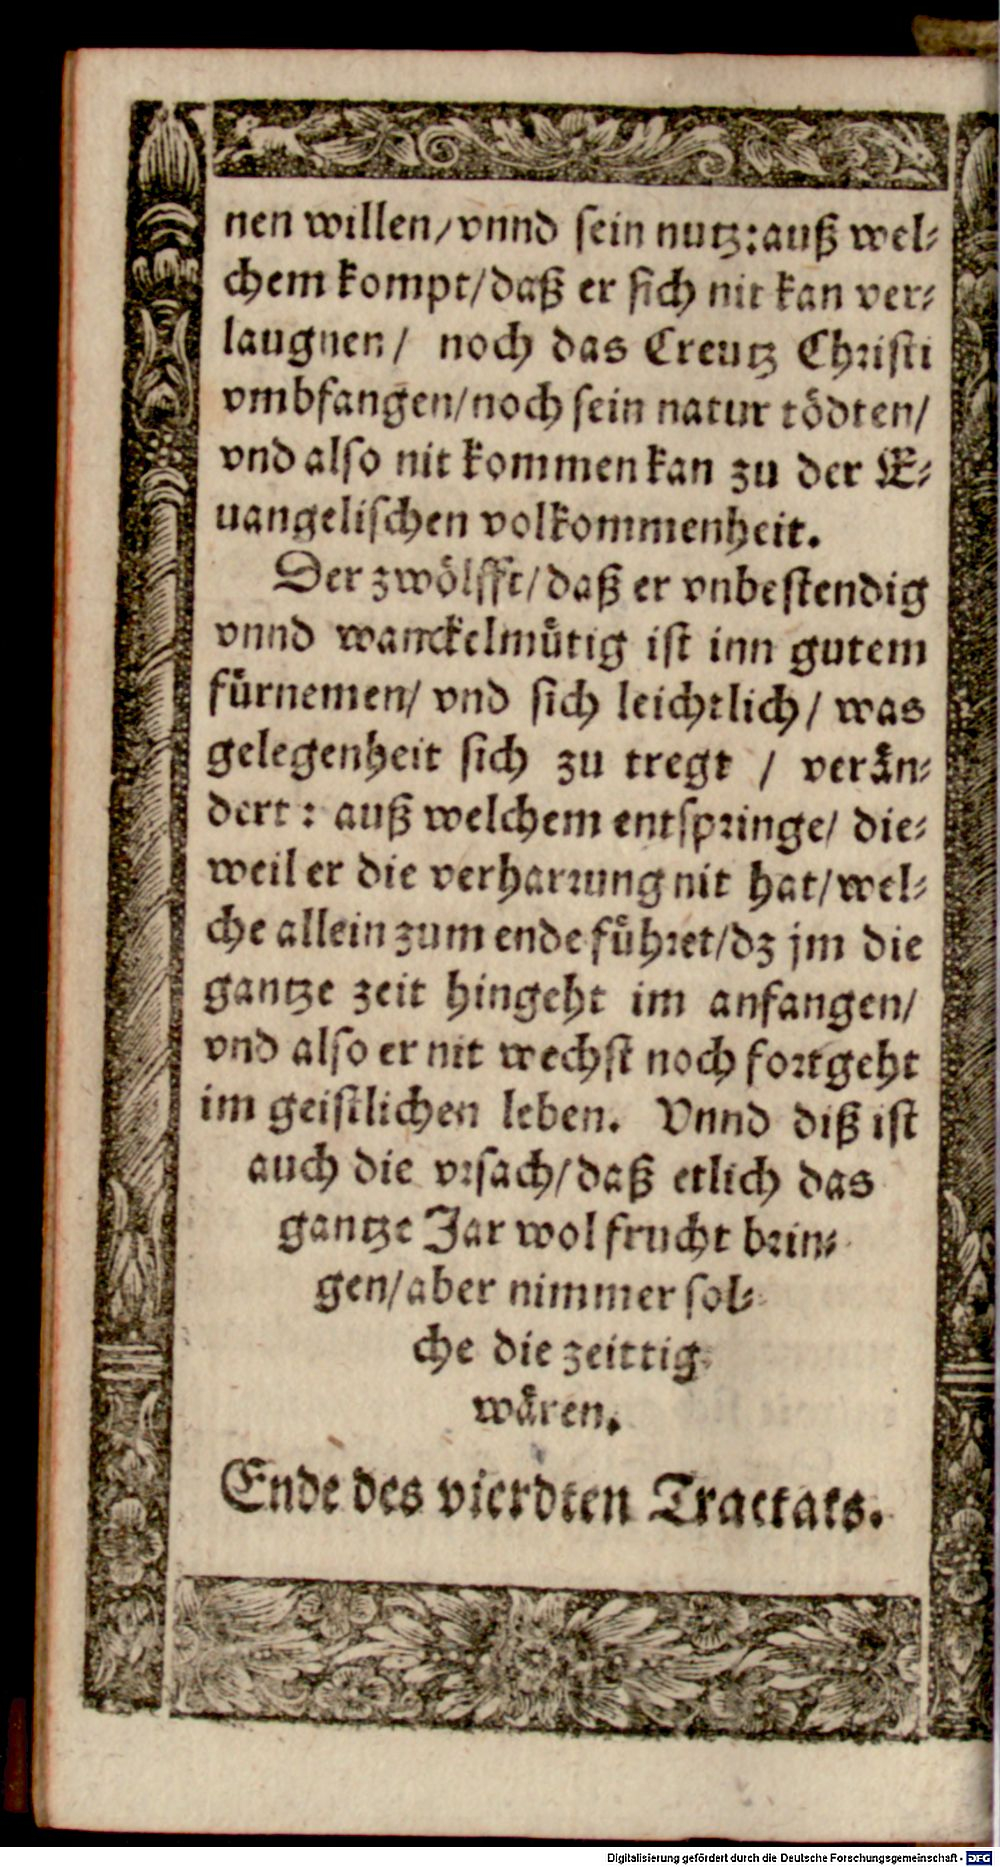 nen willen/vnnd sein nutz:auß wel-
chem kompt/daß er sich nit kan ver-
laugnen/ noch das Creutz Christi
vmbfangen/noch sein natur tödten/
vnd also nit kommen kan zu der E-
uangelischen volkommenheit.
Der zwölfft/daß er vnbestendig
vnnd wanckelmütig ist inn gutem
fürnemen/ vnd sich leichtlich/ was
gelegenheit sich zu tregt / verän-
dert: auß welchem entspringe/ die-
weil er die verharrung nit hat/wel-
che allein zum ende führet/dz jm die
gantze zeit hingeht im anfangen/
vnd also er nit wechst noch fortgeht
im geistlichen leben. Vnnd diß ist
auch die vrsach/daß etlich das
gantze Jar wol frucht brin-
gen/aber nimmer sol-
che die zeittig
wären.
Ende des vierdten Tractats.
Digitalisierung gefördert durch die Deutsche Forschungsgemeinschaft - DFG